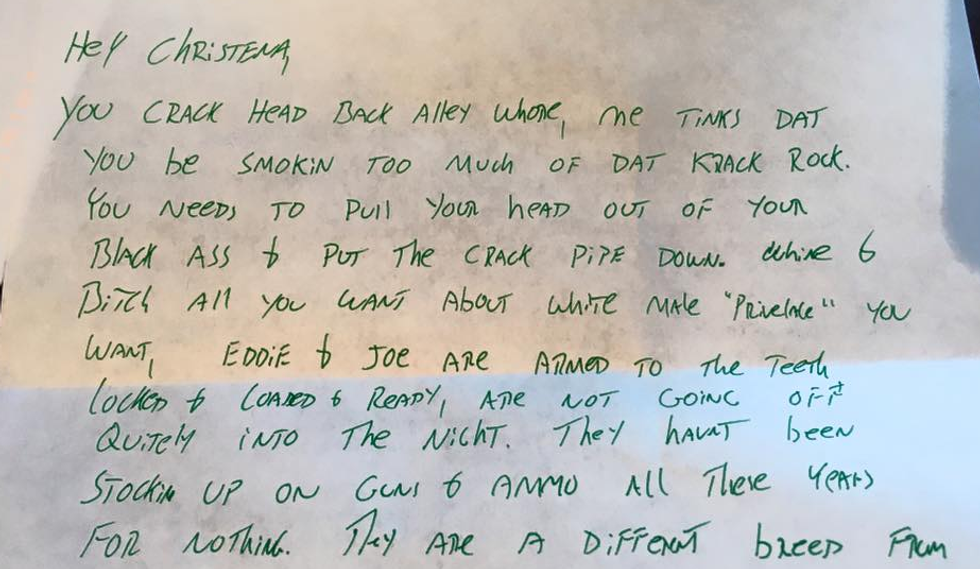 Hey Christena,
You crack head back alley whore, me tinks dat
you be smokin too much of dat krack rock.
You needs to pull your head out of your
black ass & put the crack pipe down. Whine &
bitch all you want about white male "Privelage" you
want, Eddie & Joe are armed to the teeth
locked & loaded & ready, are not going off
quitely into the night. They havnt been
stockin up on guns & ammo all these years
for nothing. They are a different breed from